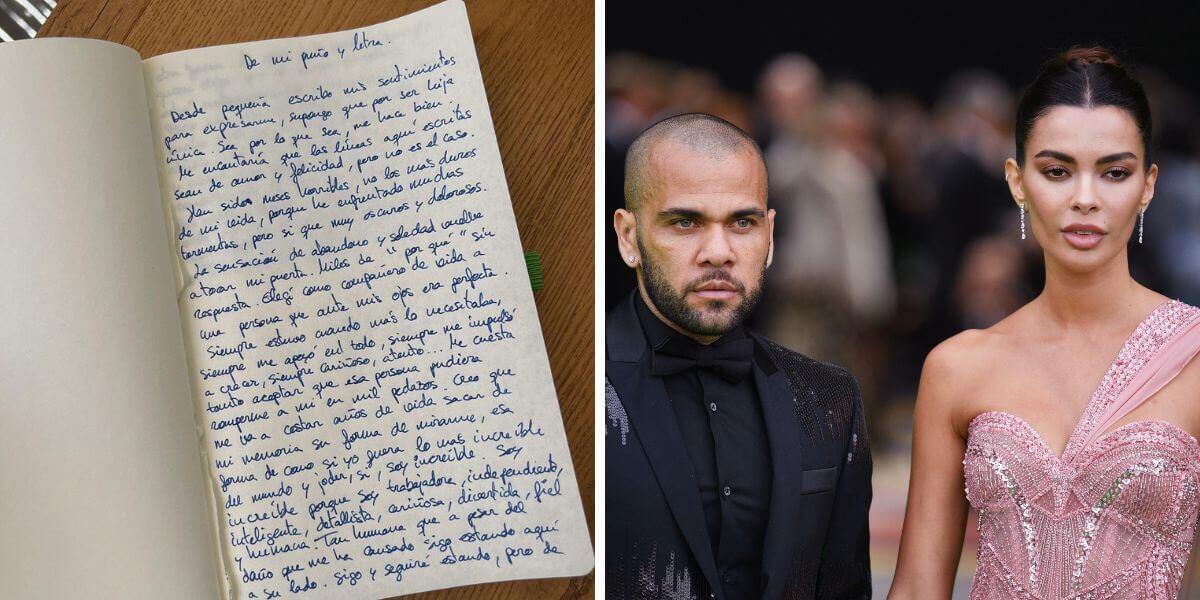 De mi puño y letra.
Desde pequeña escribo mis sentimientos
para expresarme, supongo que por ser hija
única. Sea por lo que sea, me hace bien.
Me encantaría que las líneas aquí escritas
sean de amor y felicidad, pero no es el caso.
Han sidos meses horribles, no los más duros
de mi vida, porque he enfrentado muchas
tormentas, pero si que muy oscuros y dolorosos.
La sensación de abandono y soledad vuelve
a tocar mi puerta. Miles de "por qué" sin
respuesta. Elegí como compañero de vida a
una persona que ante mis ojos era perfecta.
Siempre estuvo cuando más lo necesitaba,
siempre me apoyó en todo, siempre me impulsó
a crecer, siempre cariñoso, atento... Me cuesta
tanto aceptar que esa persona pudiera
romperme a mi en mil pedazos. Creo que
me va a costar años de vida sacar de
mi memoria su forma de mirarme, esa
forma de como si yo fuera lo más increíble
del mundo y joder, sí, soy increíble. Soy
increíble porque soy trabajadora, independiente,
inteligente, detallista, cariñosa, divertida, fiel
y humana. Tan humana que a pesar del
daño que me ha causado sigo estando aquí
a su lado. Sigo y seguiré estando, pero de